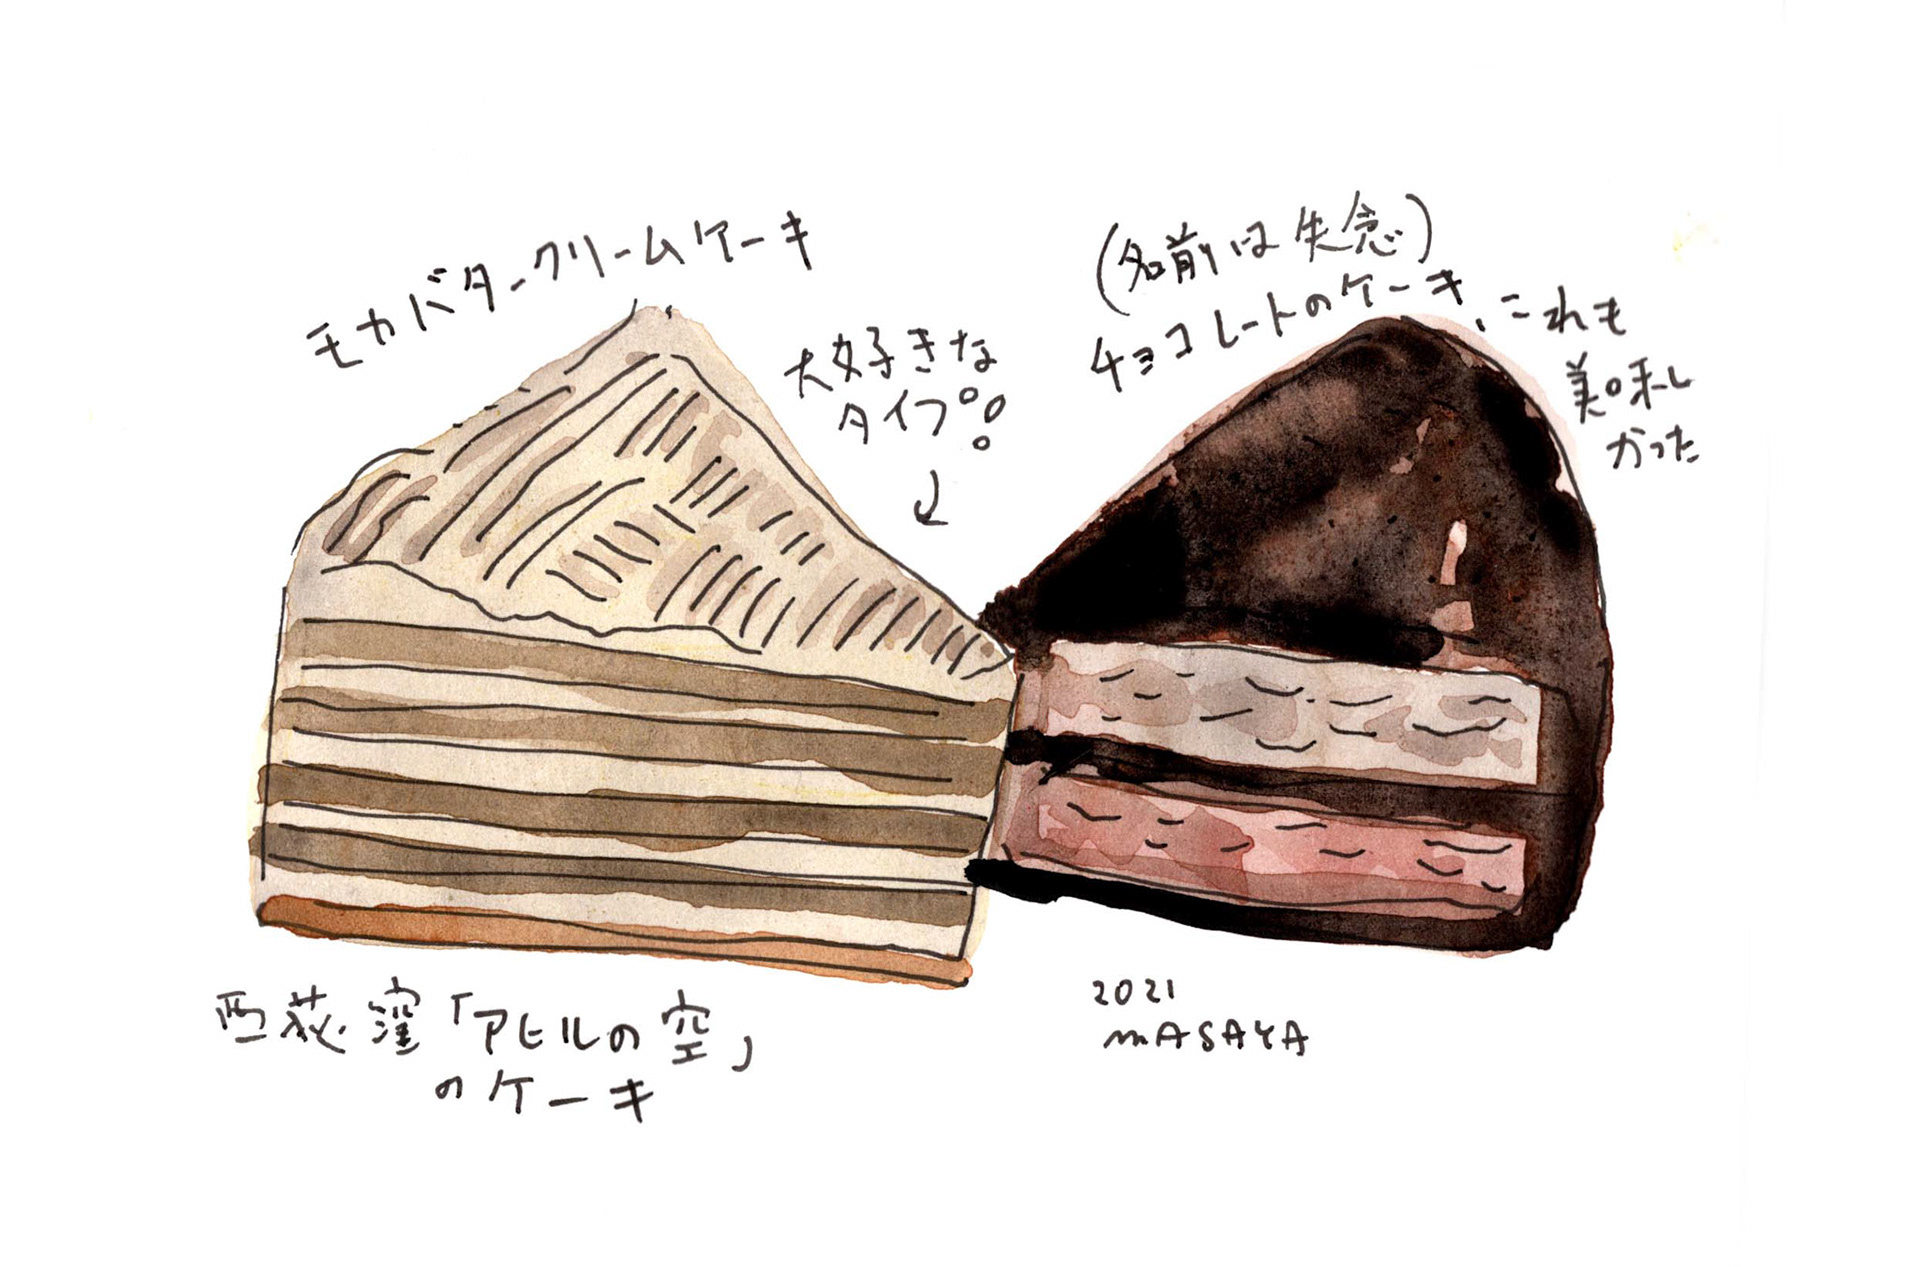 モカバタークリームケーキ
大好きな
タイプ!
(名前は失念)
チョコレートのケーキ、これも
美味し
かった
西荻窪「アヒルの空」
のケーキ
2021
MASAYA